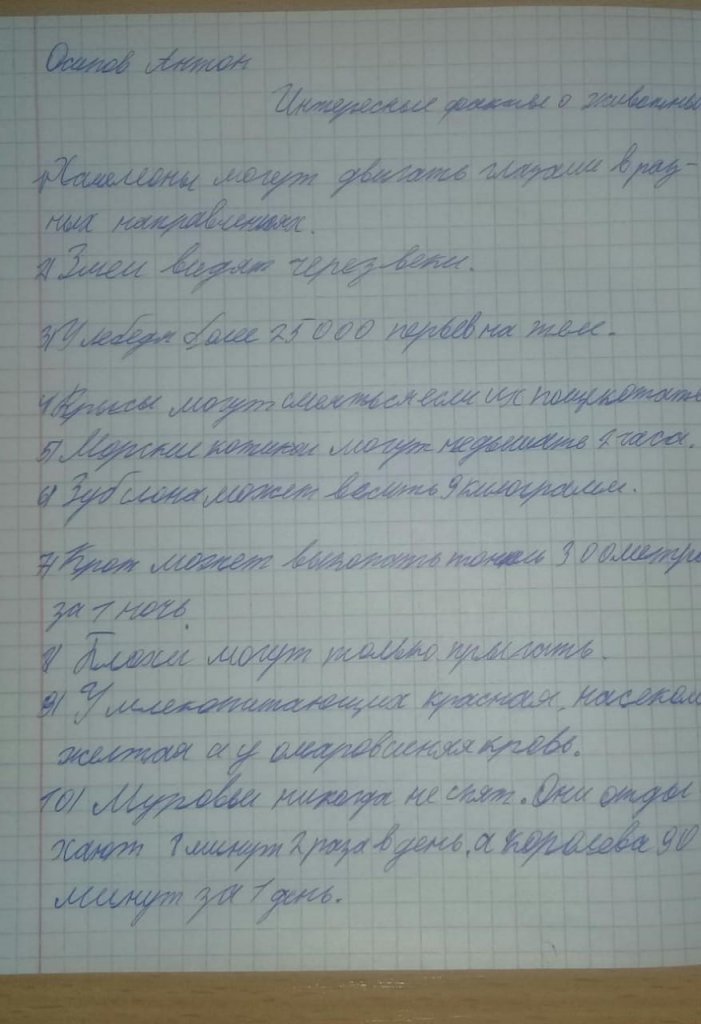 Осипов Антон
Интересные факты о животны
1) Хамелионы могут двигать глазами в раз-
ных направлениях.
2) Змеи видят через веки.
3) У лебедя более 25000 перьев на теле.
4) Крысы могут смеяться если их пощекотать
5) Морские котики могут не дышать 2 часа.
6) Зуб слона может весить 9 килограмм.
7) Крот может выкопать тонель 300 метро
за 1 ночь
8) Блохи могут только прыгать.
9) У млекопитающих красная, насеком
желтая а у омаров синяя кровь.
10) Муровьи никогда не спят. Они отды
хают 8 минут 2 раза в день, а королева 90
минут за 1 день.